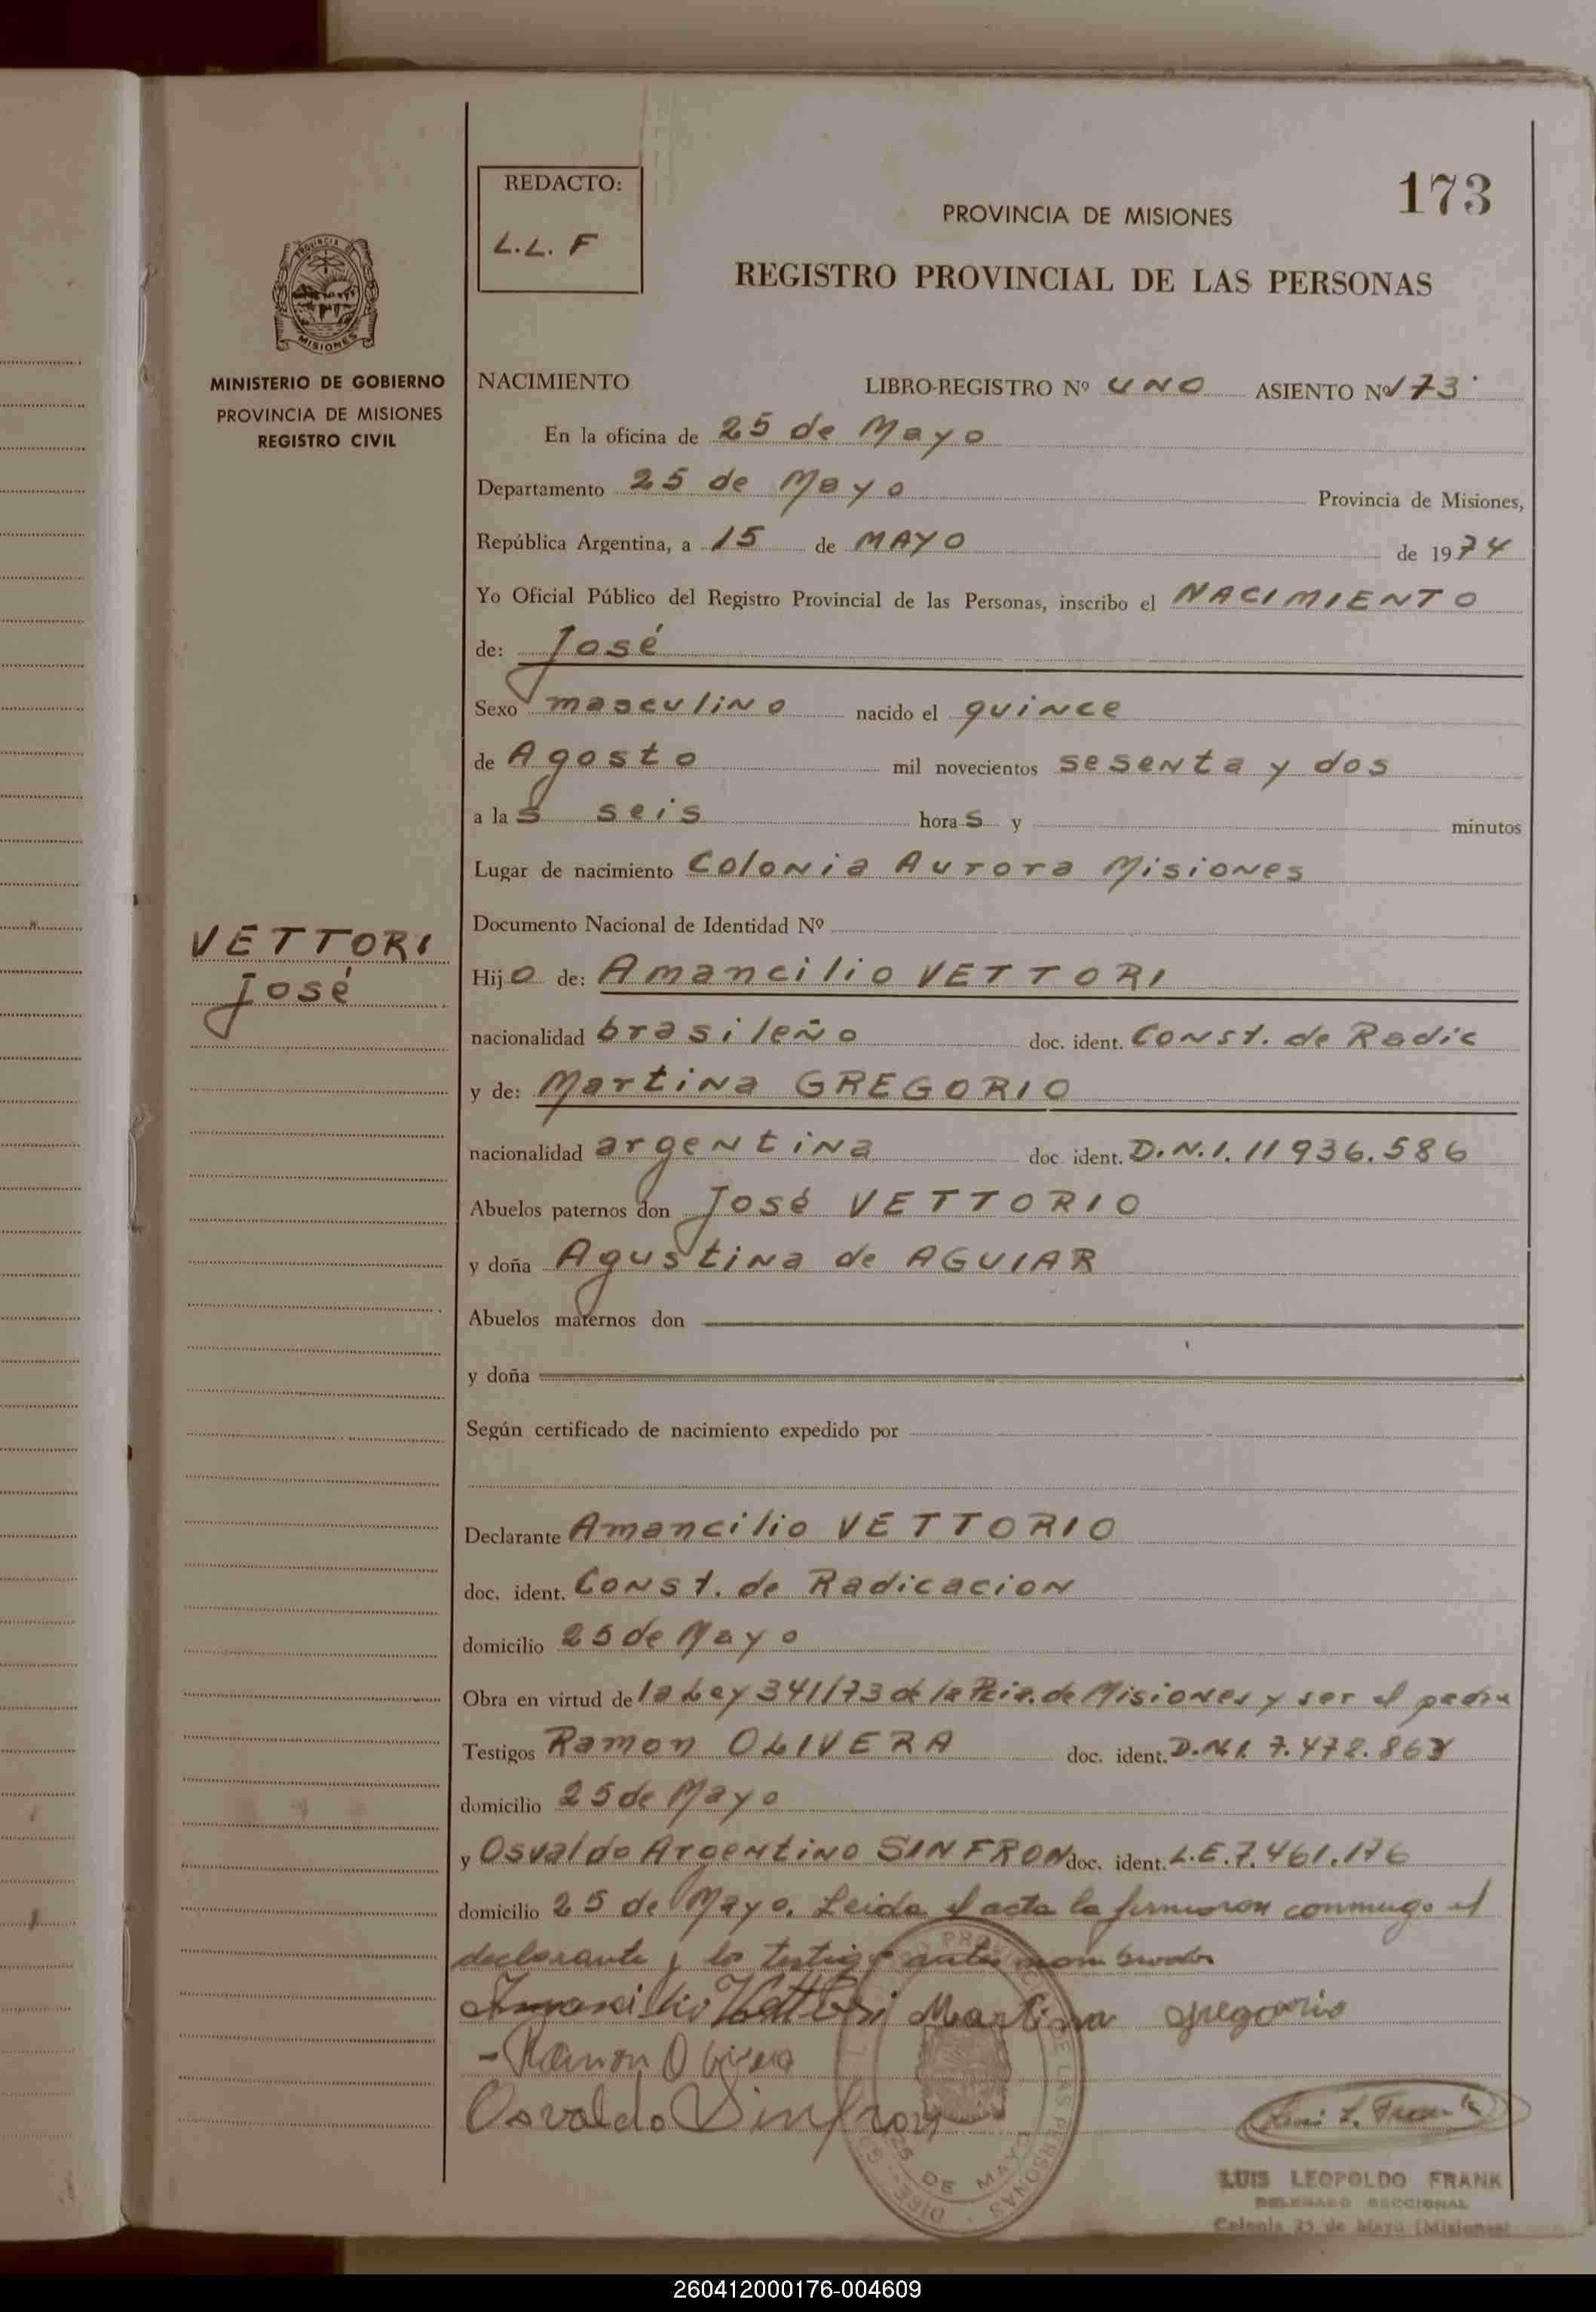 REDACTO:
L.L. F
173
PROVINCIA DE MISIONES
REGISTRO PROVINCIAL DE LAS PERSONAS
PROVINCIA DE
MISIONES
MINISTERIO DE GOBIERNO
PROVINCIA DE MISIONES
REGISTRO CIVIL
VETTORI
José
NACIMIENTO LIBRO-REGISTRO Nº UNO ASIENTO Nº 173
En la oficina de 25 de Mayo
Departamento 25 de Mayo Provincia de Misiones,
República Argentina, a 15 de MAYO de 1974
Yo Oficial Público del Registro Provincial de las Personas, inscribo el NACIMIENTO
de: José
Sexo masculino nacido el quince
de Agosto mil novecientos sesenta y dos
a las seis horas y minutos
Lugar de nacimiento Colonia Aurora Misiones
Documento Nacional de Identidad Nº
Hijo de: Amancilio VETTORI
nacionalidad brasileño doc. ident. Const. de Radic
y de: Martina GREGORIO
nacionalidad argentina doc ident. D.N.I. 11936.586
Abuelos paternos don José VETTORIO
y doña Agustina de AGUIAR
Abuelos maternos don
y doña
Según certificado de nacimiento expedido por
Declarante Amancilio VETTORIO
doc. ident. Const. de Radicacion
domicilio 25 de Mayo
Obra en virtud de la Ley 341/73 de la Pcia. de Misiones y ser el padre
Testigos Ramon OLIVERA doc. ident. D.N.I. 7.472.868
domicilio 25 de Mayo
y Osvaldo Argentino SINFRON doc. ident. L.E. 7.461.176
domicilio 25 de Mayo. Leida el acta la firmaron conmigo el
declarante y los testigos antes nombrados
Amancilio Vettori Martina gregorio
- Ramon Olivera
Osvaldo Sinfron
Luis L. Frank
LUIS LEOPOLDO FRANK
DELEGADO SECCIONAL
Colonia 25 de Mayo (Misiones)
25 DE MAYO
DE LAS PERSONAS
260412000176-004609